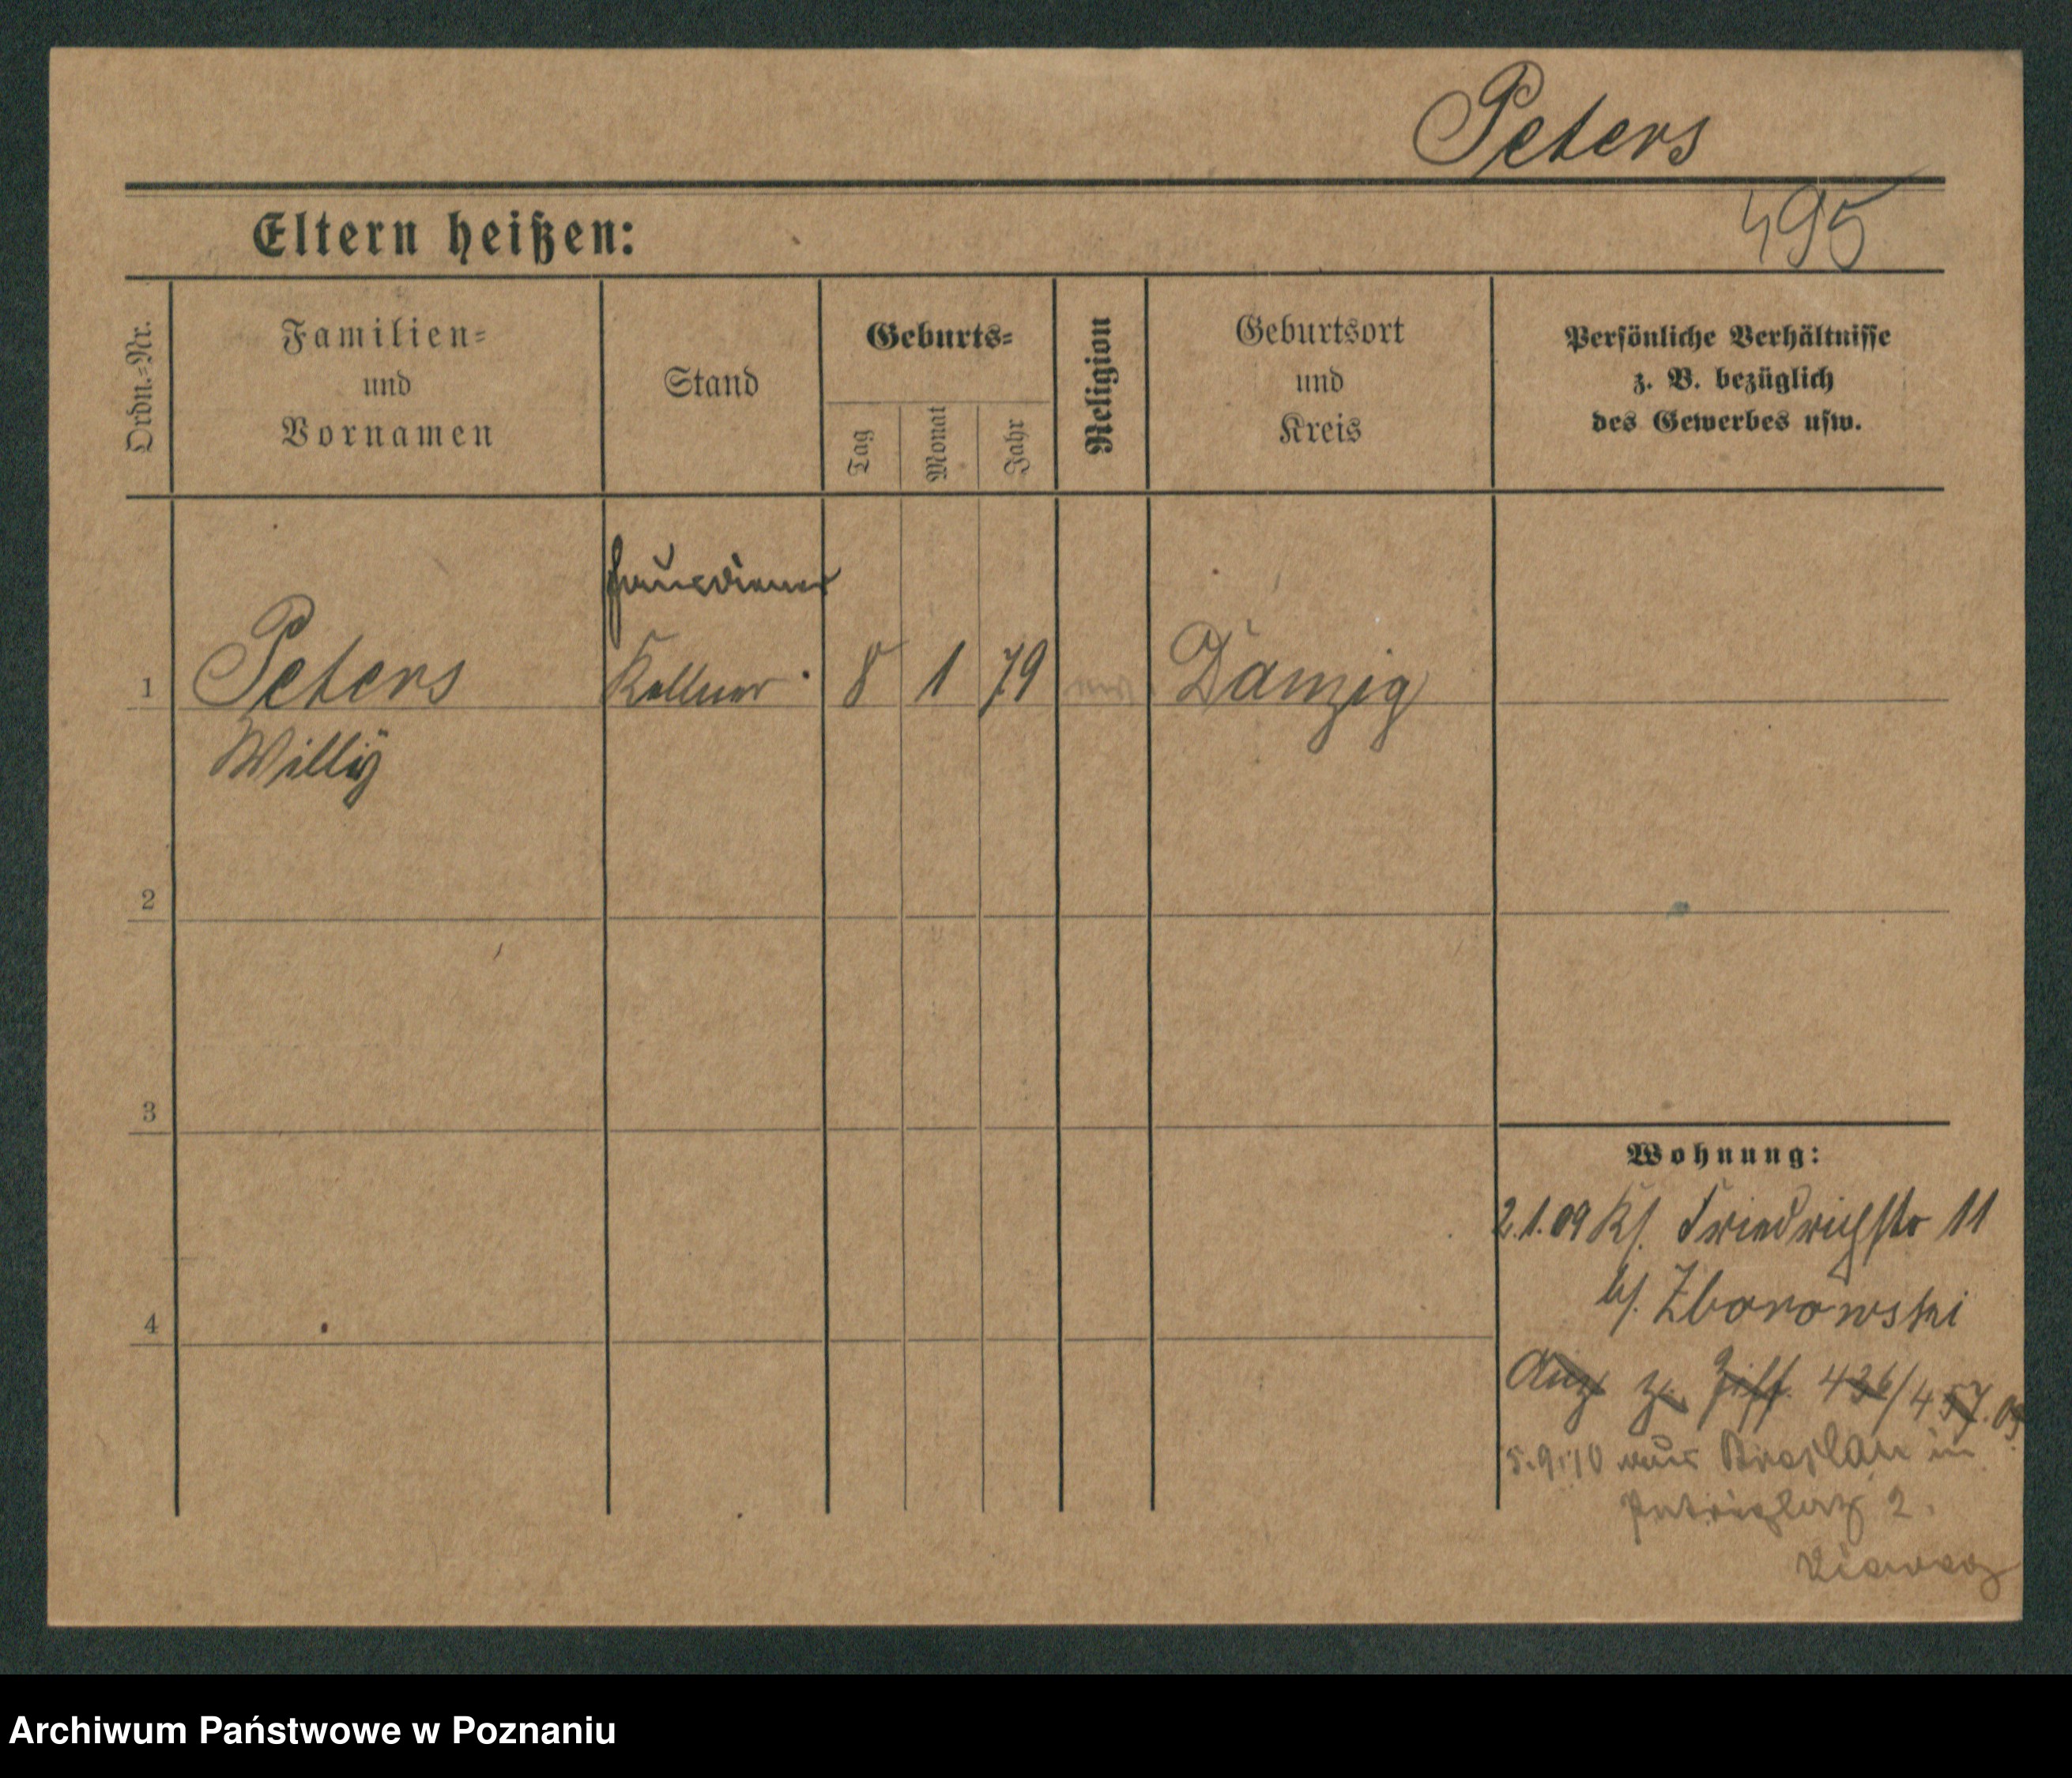 Peters
495
Eltern heißen:
Ordn.-Nr.
Familien-
und
Vornamen
Stand
Geburts-
Tag
Monat
Jahr
Religion
Geburtsort
und
Kreis
Persönliche Verhältnisse
z. B. bezüglich
des Gewerbes usw.
Hausdiener
1 Peters Kellner 8 1 79 Danzig
Willÿ
2
3
4
Wohnung:
2.1.09 Kl. Friedrichstr 11
b/. Zborowski
Anz z. Ziff. 436/457.09
5.9.10 aus Breslau in
Petriplatz 2.
Archiwum Państwowe w Poznaniu